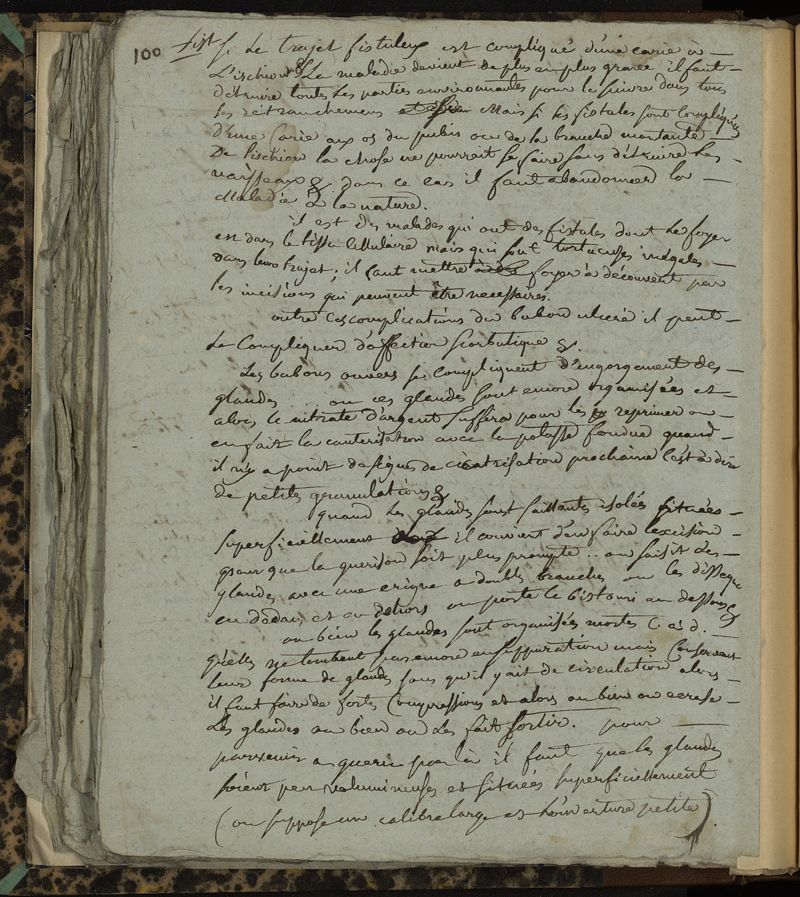 100 fist si le trajet fistuleux est compliqué d'une carie à
L'ischion & La maladie devient de plus en plus grave il faut
détruire toutes les parties environnantes pour le suivre dans tous
ses retranchemens Mais si les fistules sont compliquées
d'une Carie aux os du pubis ou de la branche montante
De l'ischion la chose ne pourrait se faire sans détruire Les
vaisseaux & dans ce cas il faut abandonner la
Maladie à la nature.
il est des malades qui ont des fistules dont le foyer
est dans le tissu Cellulaire mais qui sont tortueuses inégales
dans leur trajet ; il faut mettre foyer à découvert par
les incisions qui peuvent être necessaires.
outre ces complications du bubon ulceré il peut
se Compliquer d'affection scorbutique &.
Les bubons ouvers se compliquent d'engorgement des
glandes .. ou ces glandes sont encore organisées et
alors le nitrate d'argent suffira pour les reprimer ou
en fait la cautérisation avec la potasse fondue quand
il n'y a point de signes de cicatrisation prochaine c'est à dire
de petites granulations &
quand Les glandes sont saillantes isolées situées
superficiellement il convient d'en faire l'excision
pour que la guerison soit plus prompte .. on saisit Les
glandes avec une erigne a doubles branches on les disseque
en dedans et en dehors on porte le bistouri au dessous &
ou bien les glandes sont organisées mortes C. a d.
qu'elles ne tombent pas encore en suppuration mais Conservent
leur forme de glandes sans qu'il y ait de circulation alors
il faut faire de fortes Compressions et alors ou bien on ecrase
Les glandes ou bien on Les fait sortir. pour
parvenir a guerir par là il faut que les glandes
soient peu volumineuses et situées superficiellement
(on suppose un calibre large et l'ouverture petite)